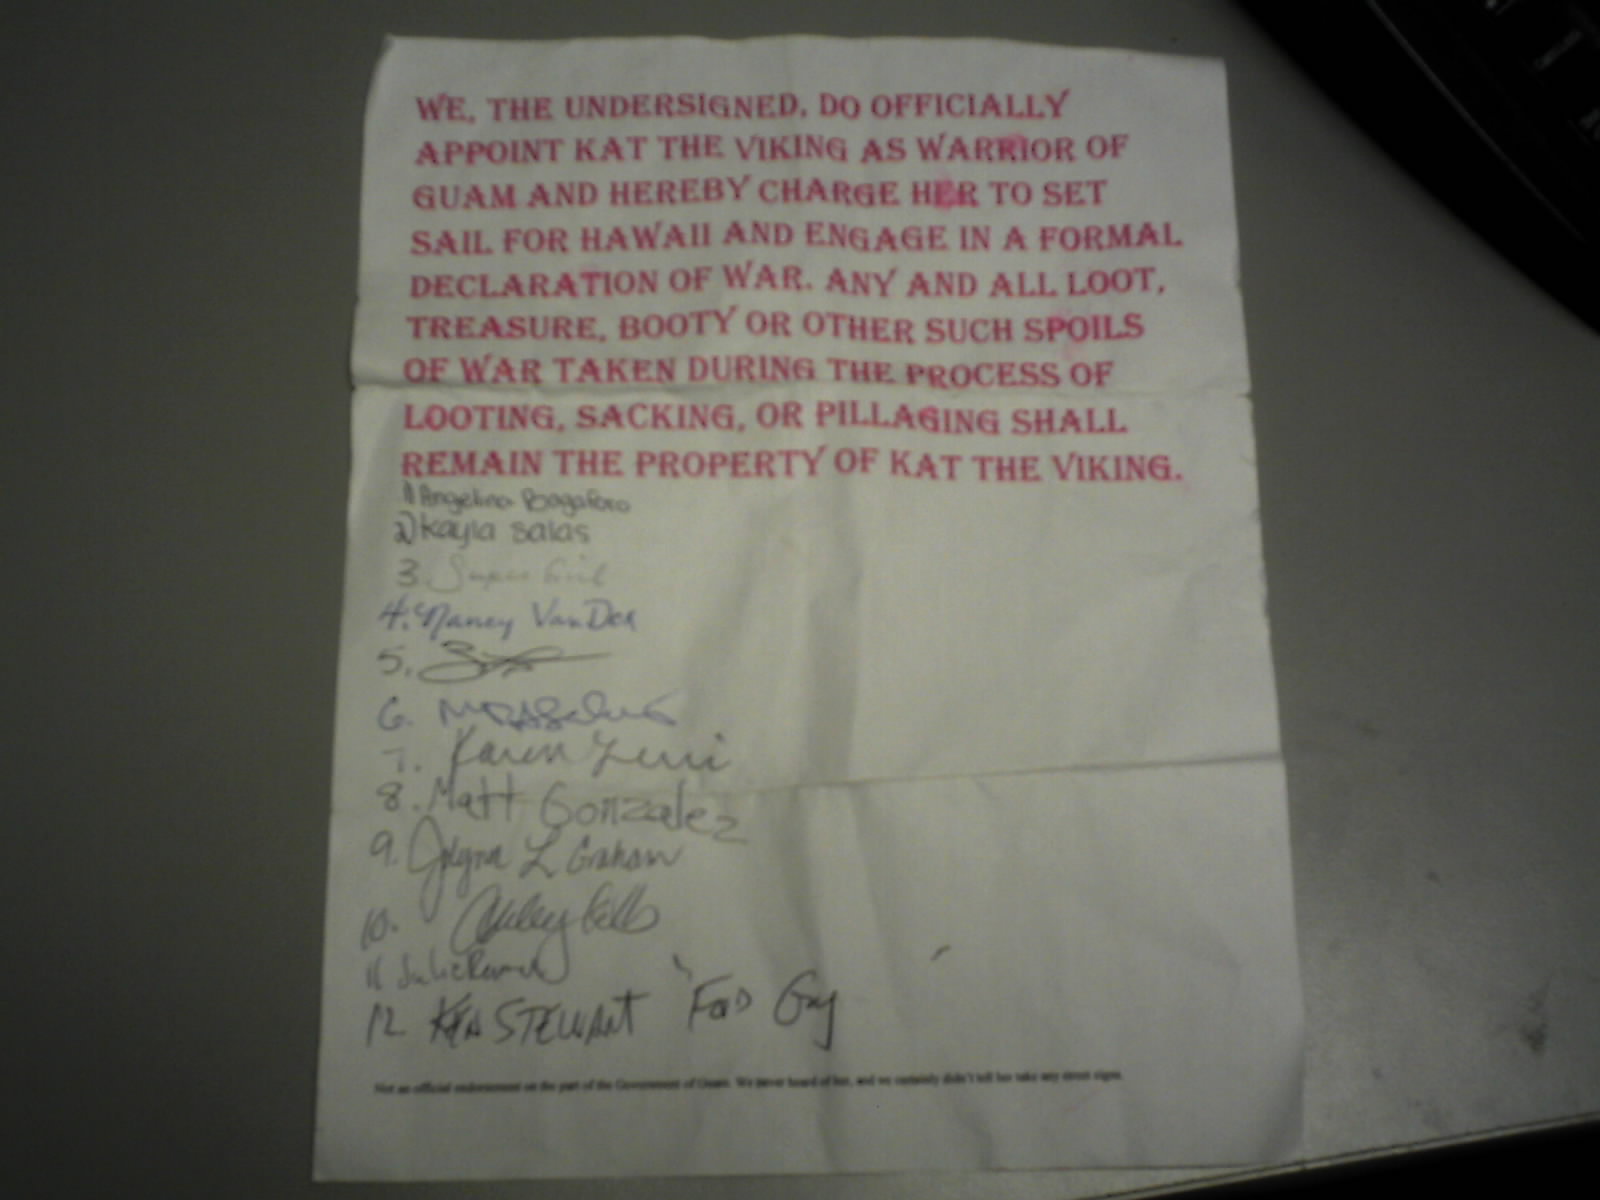 WE, THE UNDERSIGNED, DO OFFICIALLY
APPOINT KAT THE VIKING AS WARRIOR OF
GUAM AND HEREBY CHARGE HER TO SET
SAIL FOR HAWAII AND ENGAGE IN A FORMAL
DECLARATION OF WAR. ANY AND ALL LOOT,
TREASURE, BOOTY OR OTHER SUCH SPOILS
OF WAR TAKEN DURING THE PROCESS OF
LOOTING, SACKING, OR PILLAGING SHALL
REMAIN THE PROPERTY OF KAT THE VIKING.
1) Angelina Bagaforo
2) Kayla Salas
3. Super Girl
4. Nancy VanDer
5.
6.
7. Karen
8. Matt Gonzalez
9. L Graham
10.
11 Julie
12 KEN STEWART "Food Guy
Not an official endorsement on the part of the Government of Guam. We never heard of her, and we certainly didn't tell her take any street signs.